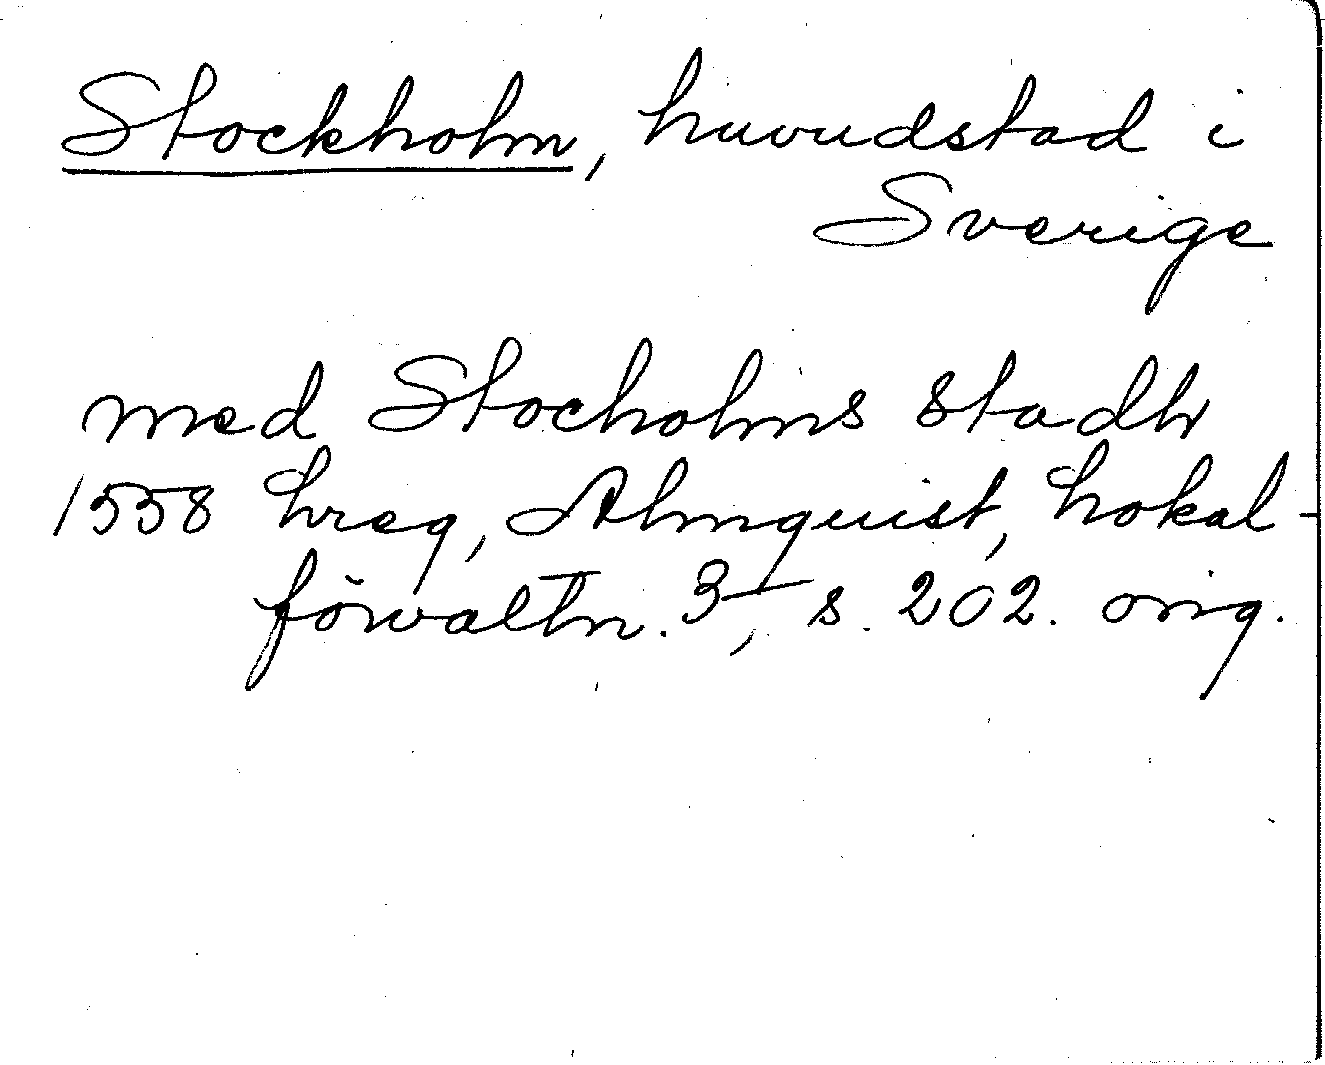 Stockholm, huvudstad i
Sverige
med Stocholms stadh
1558 hreg, Almquist, Lokal-
förvaltn. 3, s. 202. orig.